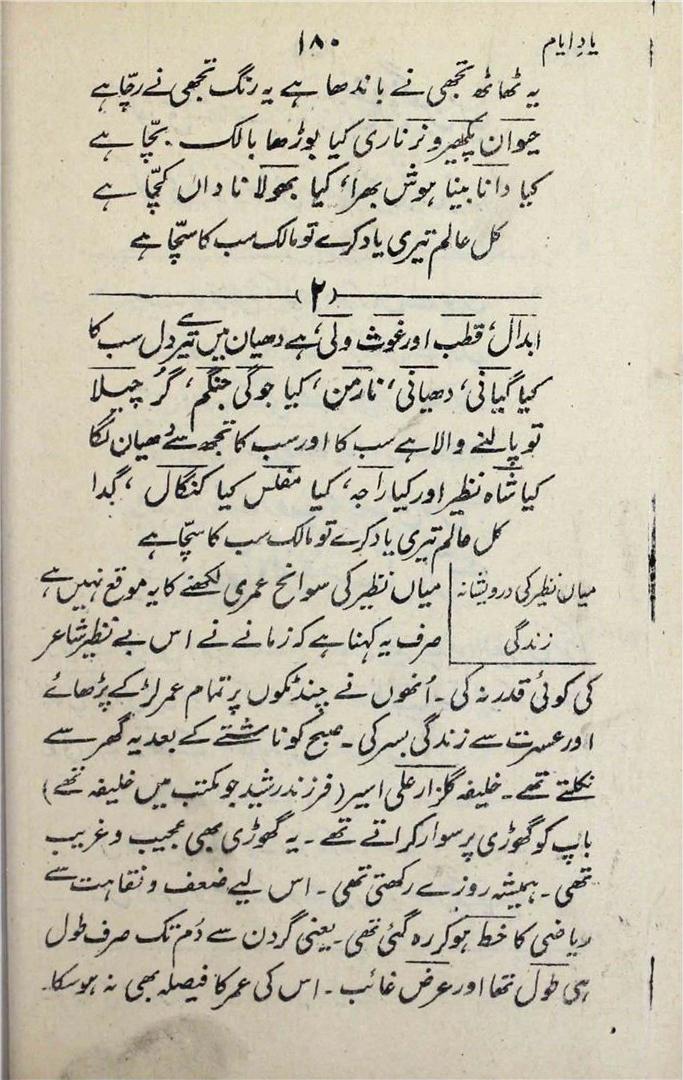 یادِ ایام
۱۸۰
یہ ٹھاٹھ تجھی نے باندھا ہے یہ رنگ تجھی نے رچّا ہے
حیوان پکھیرو نر ناری کیا بوڑھا بالک بچّا ہے
کیا دانا بینا ہوش بھرا، کیا بھولا ناداں کچّا ہے
کل عالم تیری یاد کرے تو مالک سب کا سچّا ہے
(۲)
ابدال، قطب اور غوث ولی، ہے دھیان میں تیرے دل سب کا
کیا گیانی، دھیانی، نارمن، کیا جوگی جنگم، گُر چیلا
تو پالنے والا ہے سب کا اور سب کا تجھ سے دھیان لگا
کیا شاہ نظیر اور کیا راجہ، کیا مفلس کیا کنگال، گدا
کل عالم تیری یاد کرے تو مالک سب کا سچّا ہے
میاں نظیر کی درویشانہ
زندگی
میاں نظیر کی سوانح عمری لکھنے کا یہ موقع نہیں ہے
صرف یہ کہنا ہے کہ زمانے نے اس بے نظیر شاعر
کی کوئی قدر نہ کی۔ اُنھوں نے چند ٹکوں پر تمام عمر لڑکے پڑھائے
اور عسرت سے زندگی بسر کی۔ صبح کو ناشتے کے بعد یہ گھر سے
نکلتے تھے۔ خلیفہ گلزار علی اسیر (فرزند رشید جو مکتب میں خلیفہ تھے)
باپ کو گھوڑی پر سوار کراتے تھے۔ یہ گھوڑی بھی عجیب و غریب
تھی۔ ہمیشہ روزے رکھتی تھی۔ اس لیے ضعف و نقاہت سے
ریاضی کا خط ہو کر رہ گئی تھی۔ یعنی گردن سے دُم تک صرف طول
ہی طول تھا اور عرض غائب۔ اس کی عمر کا فیصلہ بھی نہ ہو سکا۔